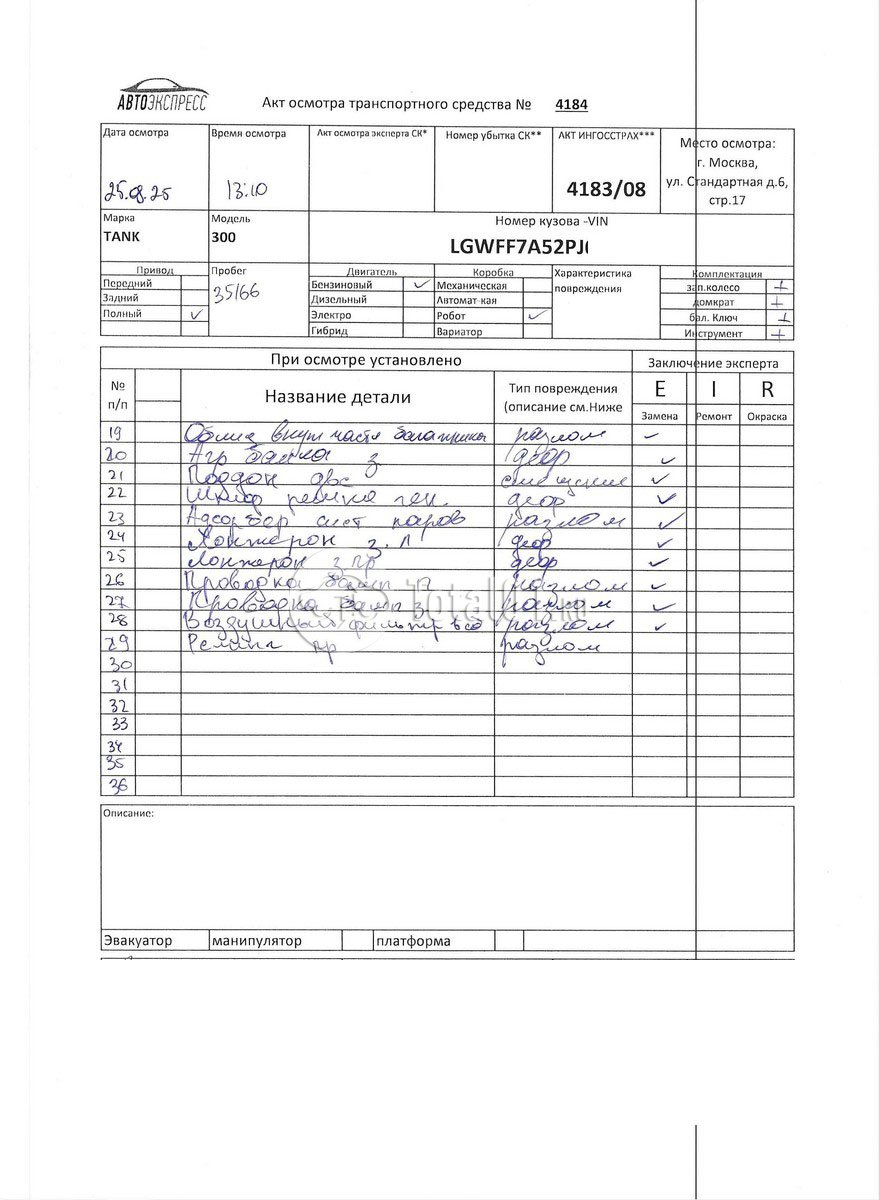 АВТОЭКСПРЕСС
Акт осмотра транспортного средства № 4184
Дата осмотра Время осмотра Акт осмотра эксперта СК* Номер убытка СК** АКТ ИНГОССТРАХ*** Место осмотра:
г. Москва,
ул. Стандартная д.6,
стр.17
25.08.25 13:10 4183/08
Марка Модель Номер кузова -VIN
TANK 300 LGWFF7A52PJ
Привод Пробег Двигатель Коробка Характеристика Комплектация
повреждения
Передний 35166 Бензиновый ✓ Механическая зап.колесо +
Задний Дизельный Автомат-кая домкрат +
Полный ✓ Электро Робот ✓ бал. Ключ +
Гибрид Вариатор Инструмент +
При осмотре установлено Заключение эксперта
№ п/п Название детали Тип повреждения (описание см.Ниже E I R
Замена Ремонт Окраска
19 Облиц внут части багажника разлом ✓
20 балка з деор ✓
21 Поддон двс смещение ✓
22 Шкив ген. деор ✓
23 Адсорбер сист паров разлом ✓
24 Лонжерон з. л деор ✓
25 Лонжерон з пр деор ✓
26 Проводка бамп п разлом ✓
27 Проводка бамп з разлом ✓
28 Воздушный фильтр в сб разлом ✓
29 пр разлом
30
31
32
33
34
35
36
Описание:
Эвакуатор манипулятор платформа